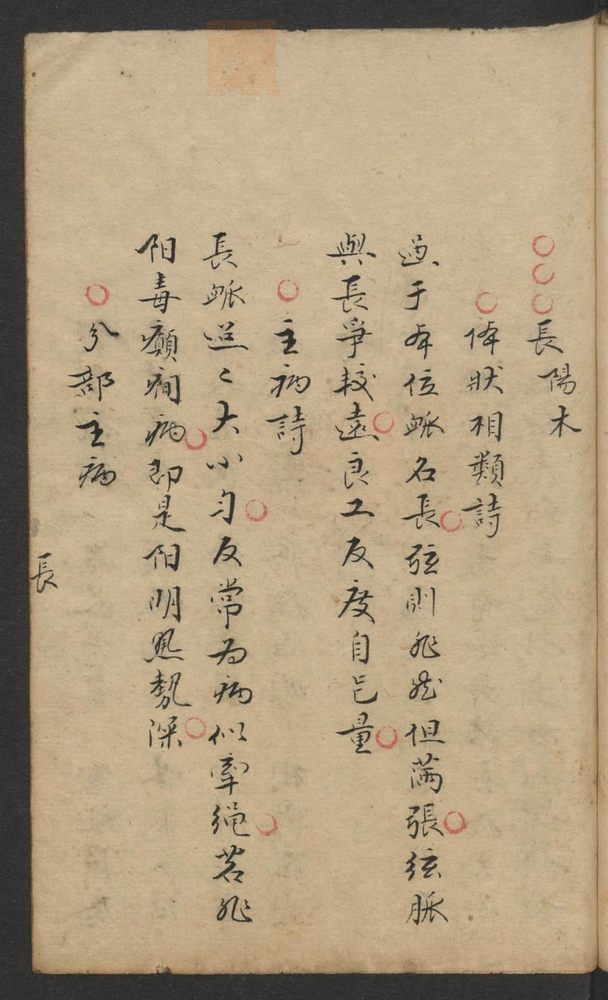 ○○○長陽木
○体狀相類詩
過于本位脈名長○弦則非然但滿張○弦脈
與長爭較遠○良工反度自己量○
○主病詩
長脈迢々大小勻○反常為病似牽繩○若非
阳毒癲癎病○即是阳明熱勢深○
○分部主病
長